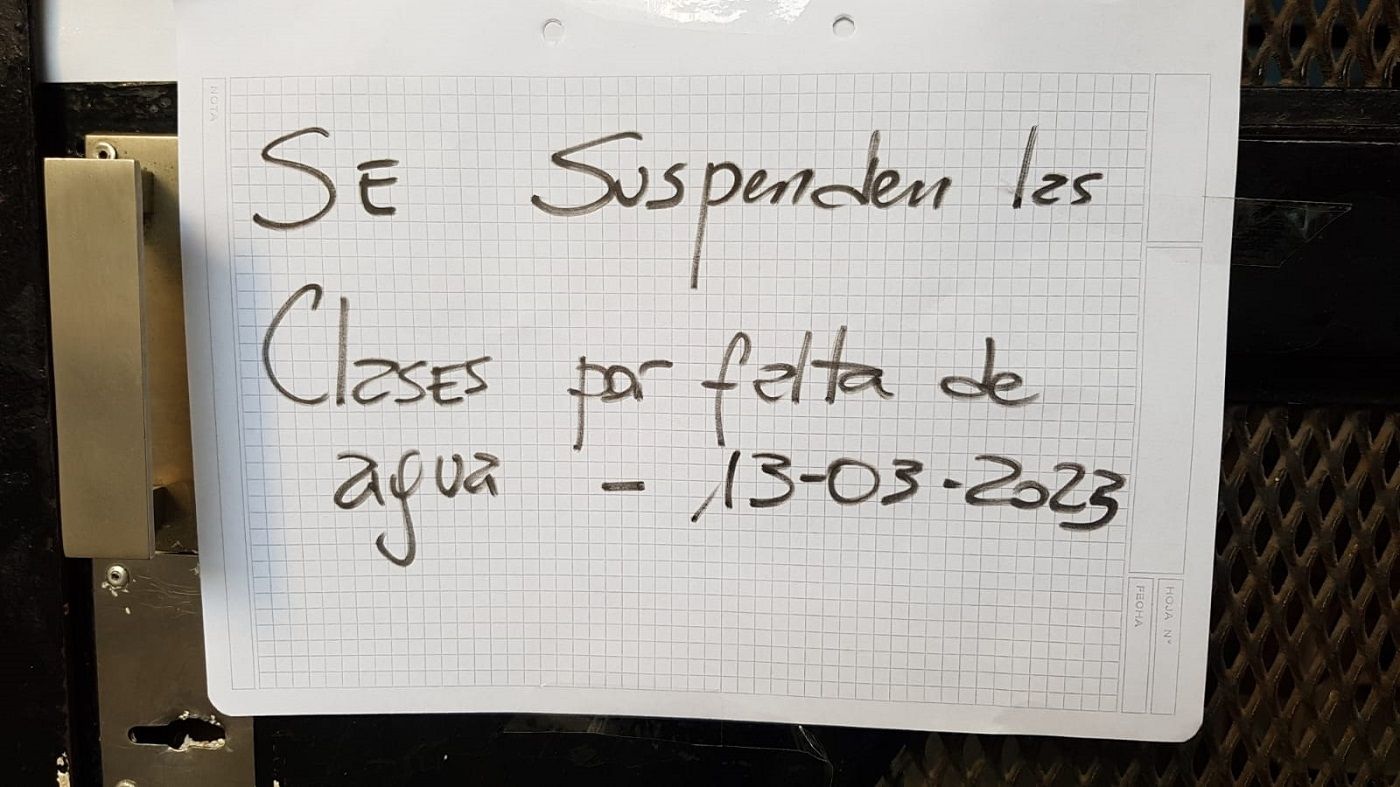 SE Suspenden las
Clases por falta de
agua - 13-03-2023
NOTA
HOJA N°
FECHA